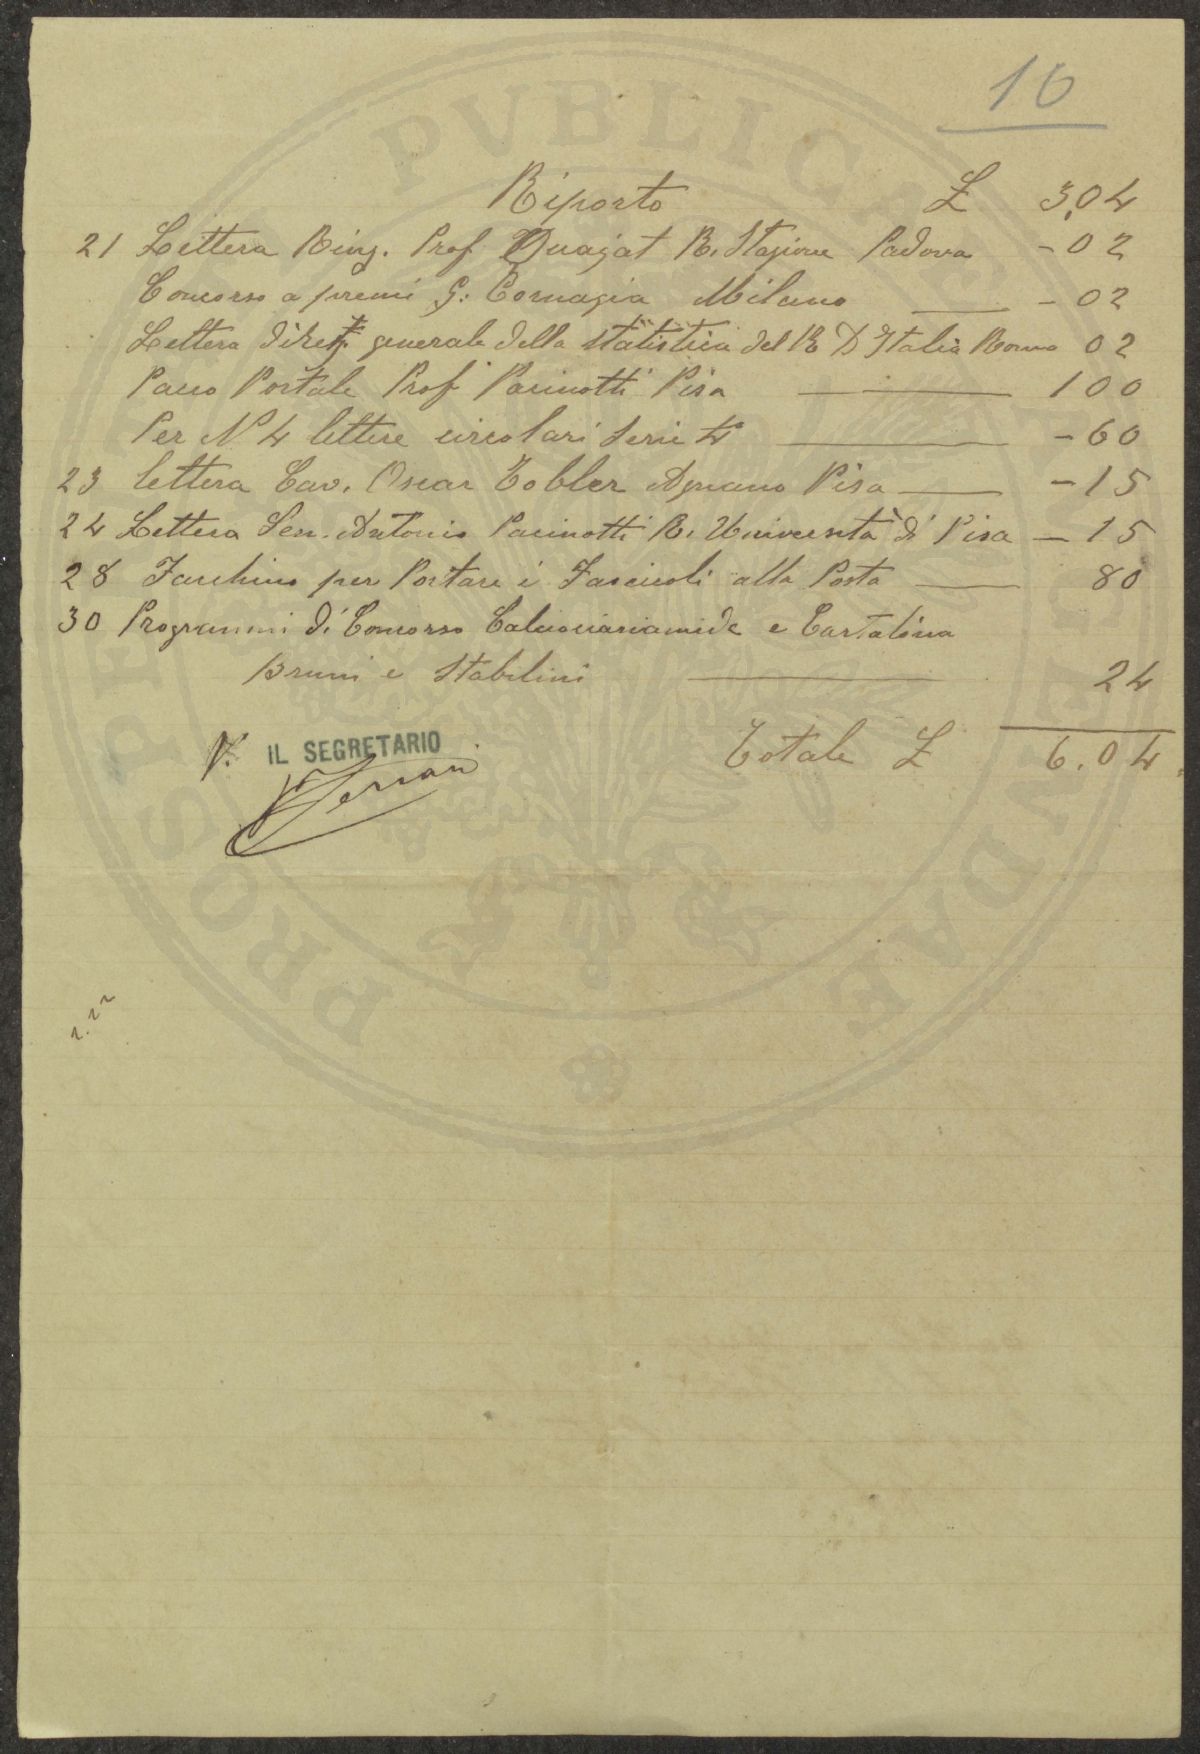 16
Riporto £ 3,04
21 Lettera Ring. Prof. Quajat R. Stazione Padova - 02
Concorso a premi G. Cornagia Milano - 02
Lettera diret. generale della statistica del R. D'Italia Roma 02
Pacco Postale Prof. Pacinotti Pisa 100
Per N. 4 lettere circolari - 60
23 lettera Cav. Oscar Tobler Agnano Pisa - 15
24 Lettera Sen. Antonio Pacinotti R. Università di Pisa - 15
28 Facchino per Portare i Fascicoli alla Posta 80
30 Programmi di Concorso Calciocianamide e Cartolina
Bruni e Stabilini 24
V. IL SEGRETARIO Totale £ 6.04
PROSPERITATI PVBLICAE AVGENDAE